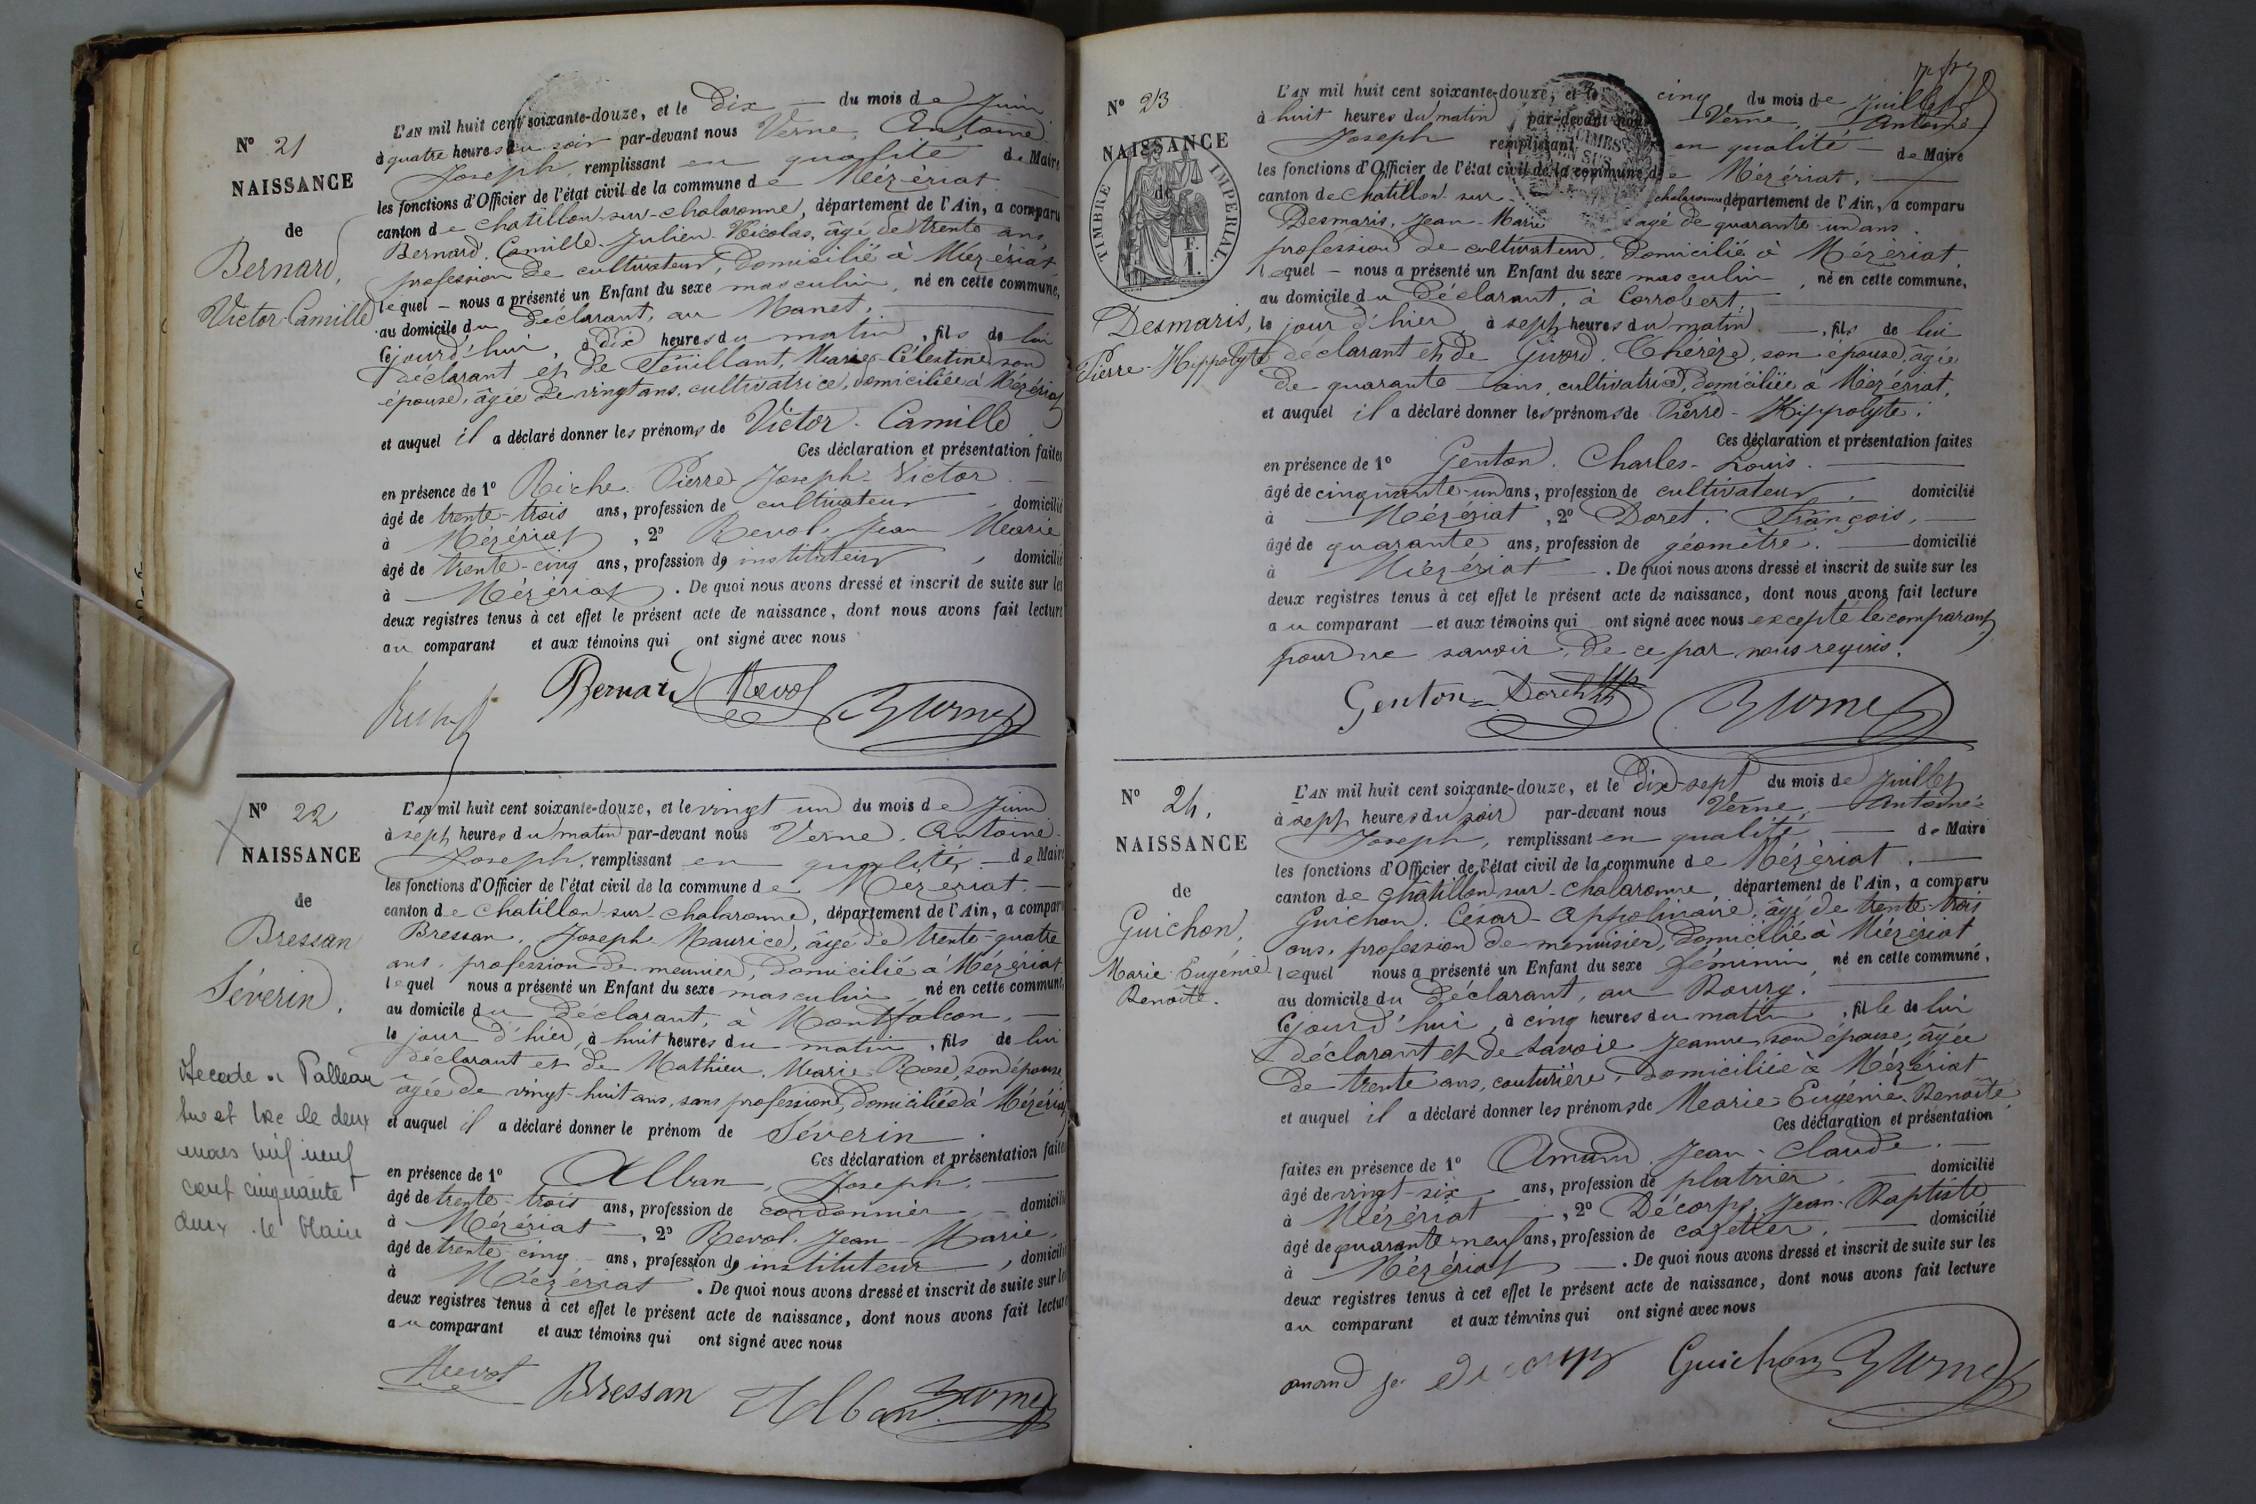 N° 21
NAISSANCE
de
Bernard,
Victor Camille
L'AN mil huit cent soixante-douze, et le Dix — du mois de Juin
à quatre heures du soir par-devant nous Verne, Antoine
Joseph, remplissant en qualité de Maire
les fonctions d'Officier de l'état civil de la commune de Mézériat
canton de Chatillon-sur-chalaronne, département de l'Ain, a comparu
Bernard, Camille-Julien-Nicolas, âgé de trente ans,
profession de cultivateur, domicilié à Mézériat
lequel — nous a présenté un Enfant du sexe masculin, né en cette commune,
au domicile du déclarant, au Manet,
Cejourd'hui, à dix heures du matin, fils de lui
déclarant et de Feuillant, Marie Célestine son
épouse, âgée de vingt ans, cultivatrice, domiciliée à Mézériat
et auquel il a déclaré donner les prénoms de Victor-Camille
Ces déclaration et présentation faites
en présence de 1° Riche Pierre Joseph-Victor
âgé de trente-trois ans, profession de cultivateur, domicilié
à Mézériat, 2° Revol, Jean Marie
âgé de trente-cinq ans, profession de instituteur, domicilié
à Mézériat. De quoi nous avons dressé et inscrit de suite sur les
deux registres tenus à cet effet le présent acte de naissance, dont nous avons fait lecture
au comparant et aux témoins qui ont signé avec nous
Bernard Revol Verne
N° 22
NAISSANCE
de
Bressan
Séverin.
L'AN mil huit cent soixante-douze, et le vingt un du mois de Juin
à sept heures du matin par-devant nous Verne, Antoine-
Joseph, remplissant en qualité — de Maire
les fonctions d'Officier de l'état civil de la commune de Mézériat. —
canton de Chatillon-sur-chalaronne, département de l'Ain, a comparu
Bressan, Joseph Maurice, âgé de trente-quatre
ans, profession de meunier, domicilié à Mézériat
lequel nous a présenté un Enfant du sexe masculin, né en cette commune,
au domicile du déclarant, à Montfalcon, —
le jour d'hier, à huit heures du matin, fils de lui
déclarant et de Mathieu, Marie Rose, son épouse
âgée de vingt-huit ans, sans profession, domiciliée à Mézériat
et auquel il a déclaré donner le prénom de Séverin.
Ces déclaration et présentation faites
en présence de 1° Alban, Joseph, —
âgé de trente-trois ans, profession de cordonnier, — domicilié
à Mézériat —, 2° Revol, Jean-Marie,
âgé de trente-cinq ans, profession de instituteur, domicilié
à Mézériat. De quoi nous avons dressé et inscrit de suite sur les
deux registres tenus à cet effet le présent acte de naissance, dont nous avons fait lecture
au comparant et aux témoins qui ont signé avec nous
Revol Bressan Alban Verne
deux
mars mil neuf
cent cinquante
deux. le Maire
N° 23
NAISSANCE
de
TIMBRE IMPERIAL.
Desmaris,
Pierre-Hippolyte
L'AN mil huit cent soixante-douze, et le cinq du mois de Juillet
à huit heures du matin par-devant nous Verne, Antoine
Joseph remplissant en qualité — de Maire
les fonctions d'Officier de l'état civil de la commune de Mézériat, —
canton de Chatillon-sur-chalaronne département de l'Ain, a comparu
Desmaris, Jean-Marie âgé de quarante-un ans,
profession de cultivateur, domicilié à Mézériat,
lequel — nous a présenté un Enfant du sexe masculin, né en cette commune,
au domicile du déclarant, à Corrobert,
le jour d'hier, à sept heures du matin —, fils de lui
déclarant et de Givord, Thérèze, son épouse, âgée
de quarante ans, cultivatrice, domiciliée à Mézériat,
et auquel il a déclaré donner les prénoms de Pierre-Hippolyte.
Ces déclaration et présentation faites
en présence de 1° Genton, Charles-Louis. —
âgé de cinquante-un ans, profession de cultivateur, domicilié
à Mézériat, 2° Doret, François, —
âgé de quarante ans, profession de géomètre. — domicilié
à Mézériat —. De quoi nous avons dressé et inscrit de suite sur les
deux registres tenus à cet effet le présent acte de naissance, dont nous avons fait lecture
au comparant — et aux témoins qui ont signé avec nous excepté le comparant
pour ne savoir, de ce par nous requis.
Genton Doret Verne
N° 24.
NAISSANCE
de
Guichon,
Marie-Eugénie
Benoîte.
L'AN mil huit cent soixante-douze, et le Dix-sept du mois de Juillet
à sept heures du soir par-devant nous Verne, Antoine-
Joseph, remplissant en qualité, — de Maire
les fonctions d'Officier de l'état civil de la commune de Mézériat, —
canton de Châtillon-sur-chalaronne département de l'Ain, a comparu
Guichon, César-Appolinaire, âgé de trente-trois
ans, profession de menuisier, domicilié à Mézériat
lequel nous a présenté un Enfant du sexe féminin, né en cette commune,
au domicile du déclarant, au Bourg.
Cejourd'hui, à cinq heures du matin, fille de lui
déclarant et de Savoie Jeanne son épouse, âgée
de trente ans, couturière, domiciliée à Mézériat
et auquel il a déclaré donner les prénoms de Marie Eugénie Benoîte
Ces déclaration et présentation
faites en présence de 1° Amand, Jean-Claude. —
âgé de vingt-six ans, profession de platrier, — domicilié
à Mézériat —, 2° Décorps, Jean-Baptiste
âgé de quarante-neuf ans, profession de cafetier, — domicilié
à Mézériat —. De quoi nous avons dressé et inscrit de suite sur les
deux registres tenus à cet effet le présent acte de naissance, dont nous avons fait lecture
au comparant et aux témoins qui ont signé avec nous
Guichon Verne